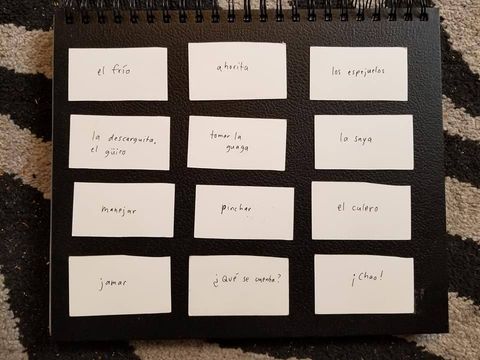 el frío
ahorita
los espejuelos
la descarguita,
el güiro
tomar la
guagua
la saya
manejar
pinchar
el culero
jamar
¿Qué se cuenta?
¡Chao!